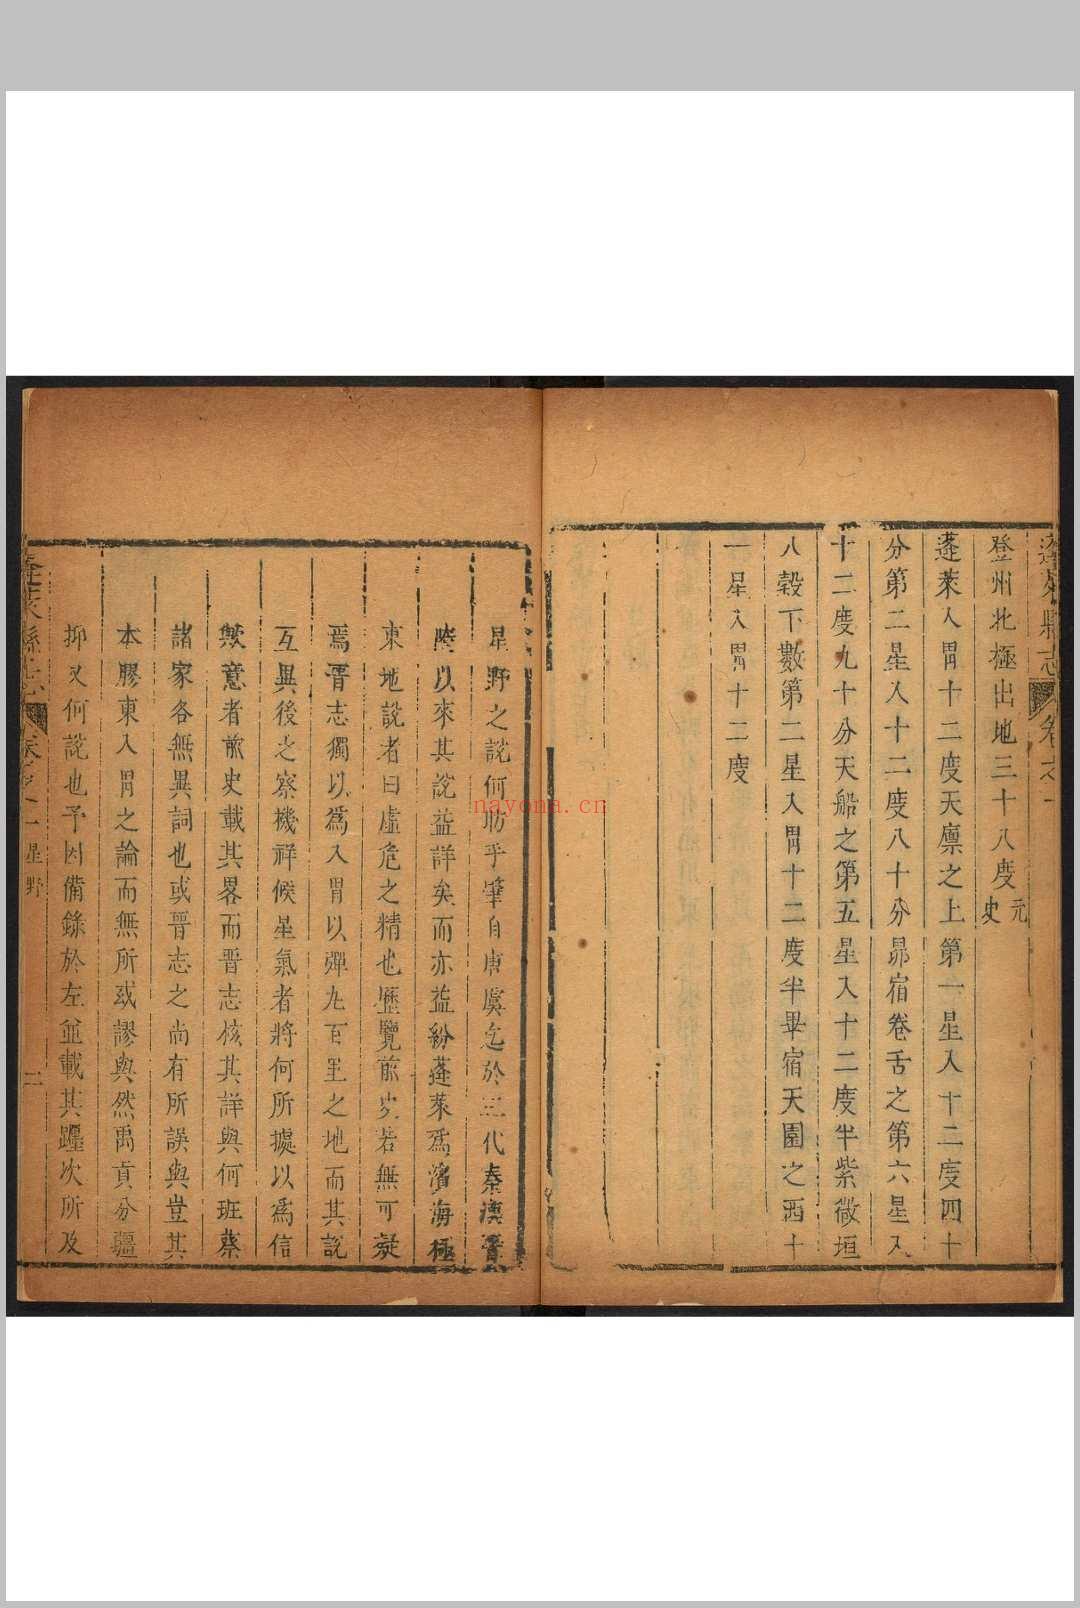 蓬萊縣志 卷之一
登州北極出地三十八度元史
蓬萊入胃十二度天廪之上第一星入十二度四十
分第二星入十二度八十分昴宿卷舌之第六星入
十二度九十分天船之第五星入十二度半紫微垣
八穀下數第二星入胃十二度半畢宿天園之西十
一星入胃十二度
星野之說何昉乎肇自唐虞迄於三代秦漢晉
隋以來其說益詳矣而亦益紛蓬萊爲濱海極
東地說者曰虛危之精也歷覽前史若無可疑
焉晋志獨以爲入胃以彈丸百里之地而其說
互異後之察機祥候星氣者將何所據以爲信
歟意者前史載其畧而晋志核其詳與何班蔡
諸家各無異詞也或晋志之尚有所誤與豈其
本膠東入胃之論而無所或謬與然禹貢分疆
抑又何說也予因備錄於左並載其躔次所及
蓬萊縣志 卷之一 星野 二
nayona.cn